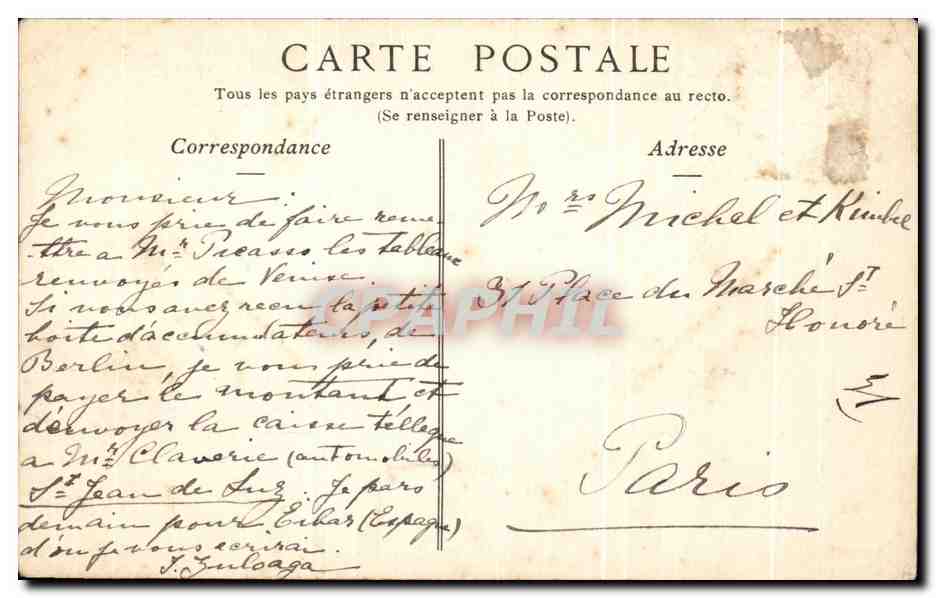 CARTE POSTALE
Tous les pays étrangers n'acceptent pas la correspondance au recto.
(Se renseigner à la Poste).
Correspondance
Monsieur:
Je vous prie de faire reme-
-ttre a Mr Picasso les tableaux
renvoyés de Venise.
Si vous avez recu la petite
boite d'accumulateurs, de
Berlin, je vous prie de
payer le montant et
d'envoyer la caisse telleque
a Mr Claverie (automobiles)
St Jean de Luz. Je pars
demain pour Eibar (Espagne)
d'ou je vous ecrirai.
I. Zuloaga
Adresse
Mrs Michel et Kimbel
31 Place du Marché St
Honoré
Paris
CPAPHIL